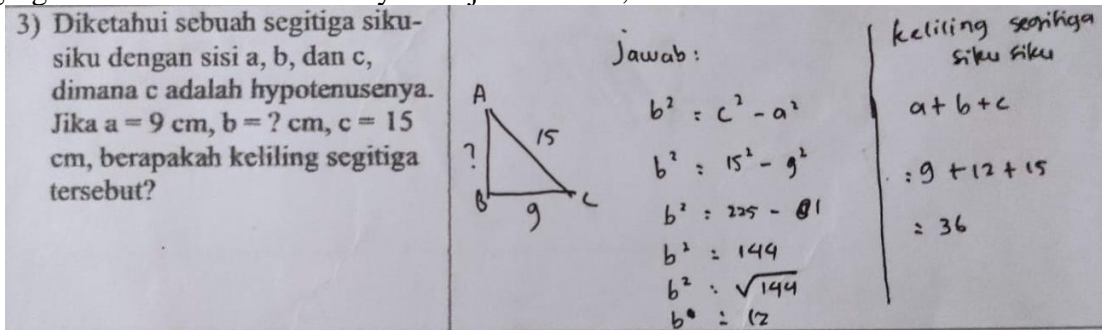 3) Diketahui sebuah segitiga siku-
siku dengan sisi a, b, dan c,
dimana c adalah hypotenusenya.
Jika a = 9 cm, b = ? cm, c = 15
cm, berapakah keliling segitiga
tersebut?
A
15
?
B
9
C
Jawab :
b² = c² - a²
b² = 15² - 9²
b² = 225 - 81
b² = 144
b² = √144
b = 12
keliling segitiga
siku siku
a + b + c
= 9 + 12 + 15
= 36